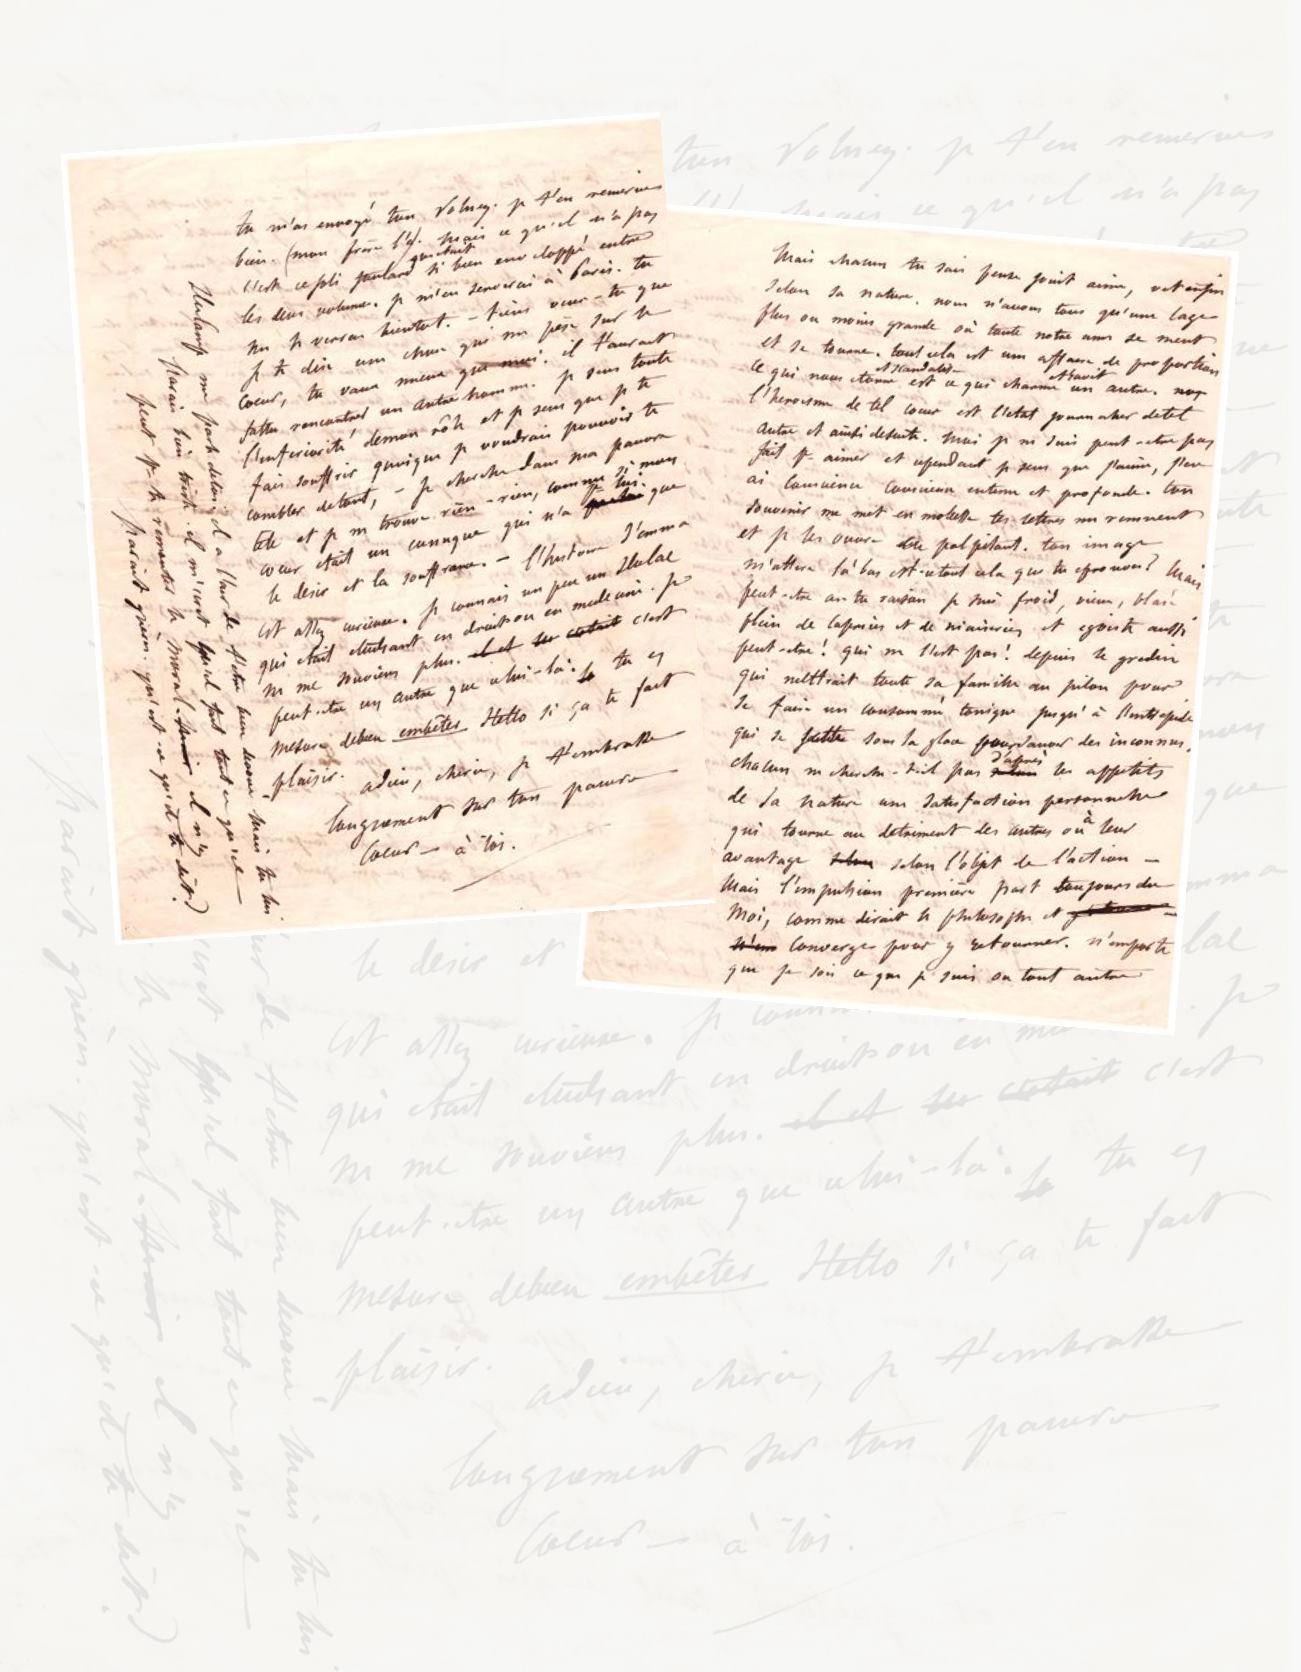 tu m'as envoyé ton Volney. je t'en remercie
bien. (mon frère l'a). Mais ce qu'il n'a pas
c'est ce joli foulard qui était si bien enveloppé entre
les deux volumes. je m'en servirai à Paris. tu
me le verras bientot. – tiens veux-tu que
je te dise une chose qui me pèse sur le
coeur, tu vaux mieux que moi. il t'aurait
fallu rencontrer un autre homme. je sens toute
l'infériorité de mon rôle et je sens que je te
fais souffrir quoique je voudrais pouvoir te
combler de tout, – je cherche dans ma pauvre
tête et je ne trouve rien - rien, comme si mon
coeur était un eunuque qui n'a que
le désir et la souffrance. – l'histoire d'Emma
est assez curieuse. je connais un peu un
qui était etudiant en droit ou en medecine. je
ne me souviens plus. c'est
peut-etre un autre que celui-là. tu es
mesure de bien embêter si ça te fait
plaisir.
adieu, cherie, je t'embrasse
longuement sur ton pauvre
coeur – à toi.
me parle de toi. il a l'air de t'etre bien devoué mais tu lui
parais bien triste. il m'ecrit qu'il fait tout ce qu'il
peut pr te remonter le moral. il n'y
parait guères. qu'est-ce qu'il te dit?)
Mais chacun tu sais pense jouit aime, vit enfin
selon sa nature. nous n'avons tous qu'une cage
plus ou moins grande où toute notre ame se meut
et se tourne. tout cela est une affaire de proportion
ce qui nous etonne scandalise est ce qui charme ravit un autre.
l'heroisme de tel coeur est l'etat journalier de tel
autre et ainsi de suite. Mais je ne suis peut-etre pas
fait pr aimer et cependant je sens que j'aime, j'en
ai conscience conscience intime et profonde. ton
souvenir me met en mollesse tes lettres me remuent
et je les ouvre en palpitant. ton image
m'attire là bas est-ce tout cela que tu eprouves? Mais
peut-etre as tu raison je suis froid, vieux, blasé
plein de caprices et de niaiseries et egoiste aussi
peut-etre! qui ne l'est pas! depuis le gredin
qui mettrait toute sa famille au pilon pour
se faire un consommé tonique jusqu'à l'intrepide
qui se jette sous la glace pour sauver des inconnus.
chacun ne cherche-t-il pas d'après les appetits
de sa nature une satisfaction personnelle
qui tourne au detriment des autres ou à leur
avantage selon l'objet de l'action –
Mais l'impulsion première part toujours du
Moi, comme dirait le philosophe et
converge pour y retourner. n'importe
que je sois ce que je suis ou tout autre